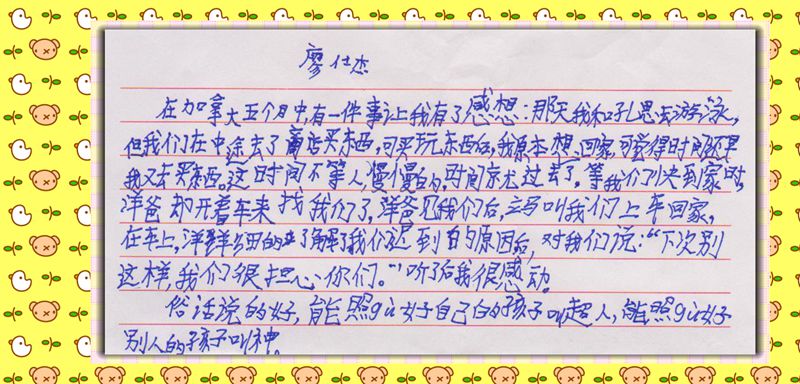 廖仕杰
在加拿大五个月中,有一件事让我有了感想:那天我和孔思去游泳,
但我们在中途去了商店买东西,可买玩东西后,我原本想回家,可觉得时间还早
我又去买东西。这时间不等人,慢慢的,时间就过去了,等我们快到家时,
洋爸却开着车来找我们了,洋爸见我们后,立马叫我们上车回家,
在车上,洋爸细的了解了我们迟到的原因后,对我们说:“下次别
这样,我们很担心你们。”听了后我很感动。
俗话说的好,能照gù好自己的孩子叫超人,能照gù好
别人的孩子叫神。